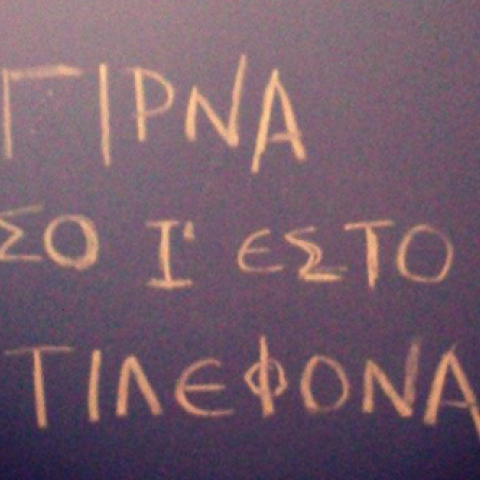 ΓΙΡΝΑ
ΣΟ Ι' ΕΣΤΟ
ΤΙΛΕΦΟΝΑ